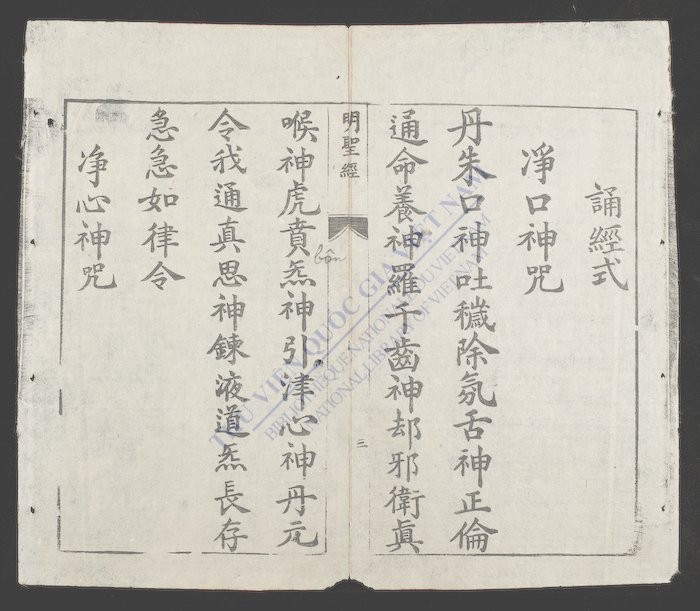 誦經式
淨口神咒
丹朱口神吐穢除氛舌神正倫
通命養神羅千齒神却邪衛眞
明聖經
三
bộn
喉神虎賁炁神引津心神丹元
令我通真思神鍊液道炁長存
急急如律令
净心神咒
THƯ VIỆN QUỐC GIA VIỆT NAM
BIBLIOTHÈQUE NATIONALE DU VIETNAM
NATIONAL LIBRARY OF VIETNAM